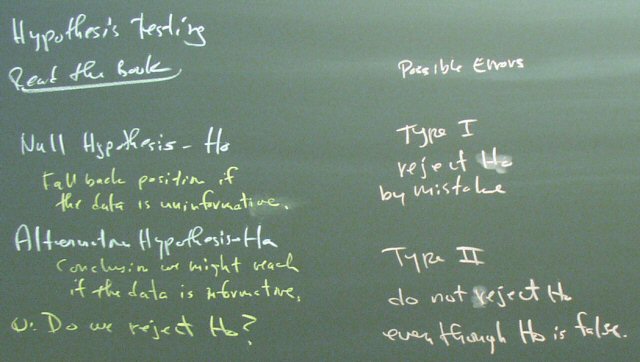 Hypothesis Testing
Read the book
Null Hypothesis - Ho
Fall back position if
the data is uninformative.
Alternative Hypothesis - Ha
Conclusion we might reach
if the data is informative.
Q: Do we reject Ho?
Possible Errors
Type I
reject Ho
by mistake
Type II
do not reject Ho
even though Ho is false.